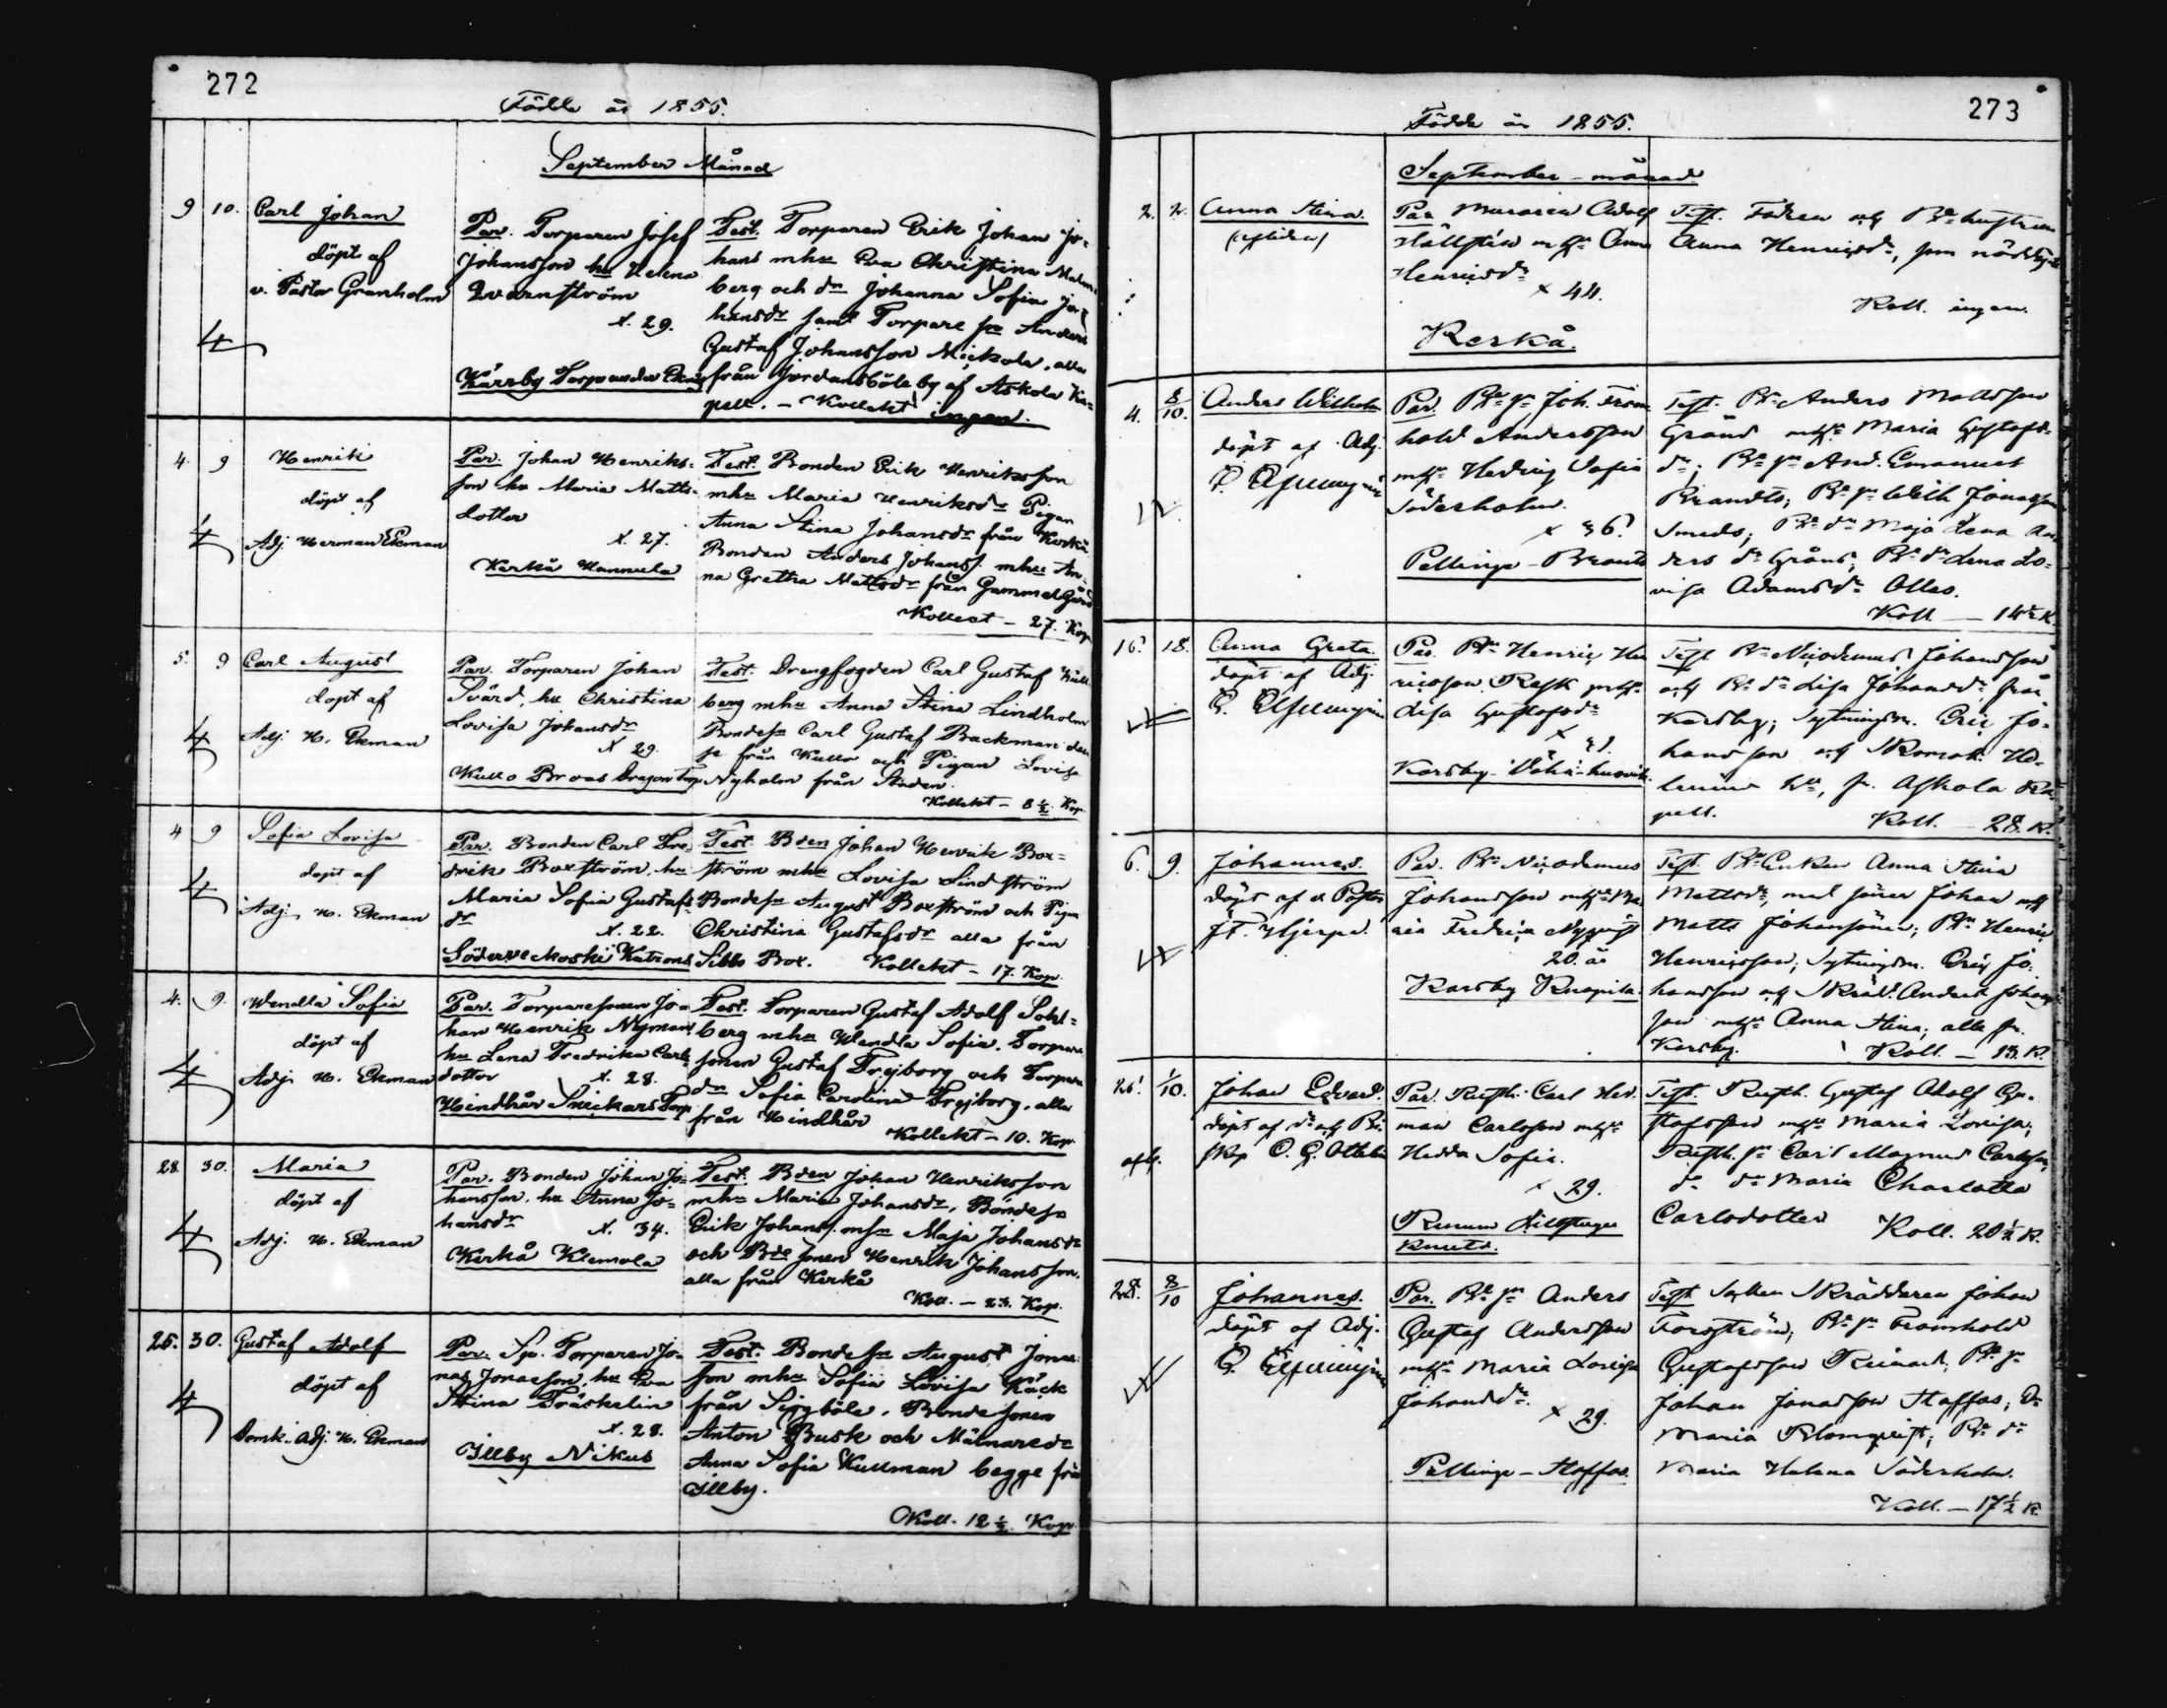 272
Födde år 1855.
September Månad
9 10. Carl Johan
döpt af
v. Pastor Granholm
Par. Torparen Josef
Johansson hu Helena
Qvarnström
x. 29.
Kärrby Torp under
Test. Torparen Erik Johan Jo-
hans mhu Eva Christina Malm-
berg och dr Johanna Sofia Jo-
hansdr samt Torpare sn Anders
Gustaf Johansson Mickola, alla
från Jordansböle by af Askola Ka-
pell. - Kollekt ingen.
4. 9 Henrik
döpt af
Adj. Herman Ekman
Par. Johan Henriks-
son hu Maria Matts-
dotter
x. 27.
Kerkå Hannula
Test. Bonden Erik Henriksson
mhu Maria Henriksdr Pigan
Anna Stina Johansdr från Kerkå
Bonden Anders Johanss. mhu An-
na Gretha Mattsdr från Gammelgård
Kollect - 27. Kop
5. 9 Carl August
döpt af
Adj. H. Ekman
Par. Torparen Johan
Svärd, hu Christina
Lovisa Johansdr
x 29.
Kullo Broas Dragon Torp
Test. Drengfogden Carl Gustaf
berg mhu Anna Stina Lindholm
Bondesn Carl Gustaf Backman
från Kullo och Pigan Lovisa
Nyholm från Staden.
Kollekt - 8 ½ Kop
4 9 Sofia Lovisa
döpt af
Adj. H. Ekman
Par. Bonden Carl Fre-
drik Boxström, hu
Maria Sofia Gustafs
dr
x. 22.
Söderveckoski Katrons
Test. Bden Johan Henrik Box-
ström mhu Lovisa Lindström
Bondesn August Boxström och Pigan
Christina Gustafsdr alla från
Sibbo Box. Kollekt - 17. Kop
4. 9. Wendla Sofia
döpt af
Adj. H. Ekman
Par. Torparesonen Jo-
han Henrik Nyman
hu Lena Fredrika Carls
dotter x. 28.
Hindhår Snickars Torp
Test. Torparen Gustaf Adolf Sohl-
berg mhu Wendla Sofia. Torpare
sonen Gustaf Frejborg och Torpare
dr Sofia Carolina Frejborg, alla
från Hindhår
Kollekt - 10. Kop
28. 30. Maria
döpt af
Adj. H. Ekman
Par. Bonden Johan Jo-
hansson. hu Anna Jo-
hansdr
x. 34.
Kerkå Klemola
Test. Bden Johan Henriksson
mhu Maria Johansdr, Bondesn
Erik Johanss. mhu Maja Johansdr
och Bde sonen Henrik Johansson,
alla från Kerkå
Koll. - 23. Kop.
25. 30. Gustaf Adolf
döpt af
Domk. Adj. H. Ekman
Par. Sp. Torparen Jo-
nas Jonasson, hu Eva
Stina Träskelin
x. 28.
Illby Nikus
Test. Bonde sn August Jonas-
son mhu Sofia Lovisa Räck
från Sigböle. Bonde sonen
Anton Busk och Mälnaredr
Anna Sofia Kullman begge från
Illby.
Koll. 12 ½ Kop
273
Födde år 1855.
September-månad.
2. 2. Anna Stina.
Par Muraren Adolf
Hällstén mhu Anna
Henriksdr
x 44.
Kerkå.
Test. Fadren och Bde hustrun
Anna Henriksdr, som nöddöpte
Koll. ingen.
4. 8/10. Anders Wilhelm
döpt af Adj.
Par. Bde sn Joh. From-
hold Andersson
mhu Hedvig Sofia
Söderholm.
x 36.
Pellinge - Brants
Test. Bdn Anders Mattsson
Gränd mhu Maria Gustafs-
dr; Bde sn And. Emanuel
Brandts; Bde sn Wilh Jonasson
Smeds; Bde dr Maja Lena An-
ders dr Gränd; Bde dr Lena Lo-
visa Adamsdr Olles.
Koll. - 14½ K
16. 18. Anna Greta.
döpt af Adj.
Par. Bdn Henric Hen
ricsson Rask mhu
Lisa Gustafsdr
x
Karsby
Test. Bdn Nicodemus Johansson
och Bde dr Lisa Johansdr från
Karsby; Sytningsm. Eric Jo-
hansson och
fr. Askola Ka-
pell. Koll. 28. K.
6. 9. Johannes.
döpt af v. Pastor
Par. Bdn Nicodemus
Johansson mhu Ma-
ria Fredrica Nyqvist
20. år
Karsby Knapila.
Test. Bde Enkan Anna Stina
Mattsdr, med söner Johan och
Matts Johanssöner; Bdn Henric
Henricsson; Sytningsm. Eric Jo-
hansson och Skräd. Anders Johans
son mhu Anna Stina; alla fr.
Karsby. Koll. - 13 K.
26. 1/10. Johan Edvard.
Par. Rusth. Carl Her-
man Carlsson mhu
Hedda Sofia.
x 29.
Knuts.
Test. Rusth. Gustaf Adolf Gu-
stafsson mhu Maria Lovisa;
Rusth. sn Carl Magnus Carlsson,
dr Maria Charlotta
Carlsdotter
Koll. 20½ K.
28. 8/10 Johannes.
döpt af Adj.
Par. Bde sn Anders
Gustaf Andersson
mhu Maria Lovisa
Johansdr
x 29.
Pellinge - Staffas.
Test. Skrädderen Johan
Forsström; Bde sn Fromhold
Gustafsson Reinars; Bde sn
Johan Jonasson Staffas; Dr
Maria Blomqvist; Bde dr
Maria Helena Söderholm.
Koll. - 17½ K.